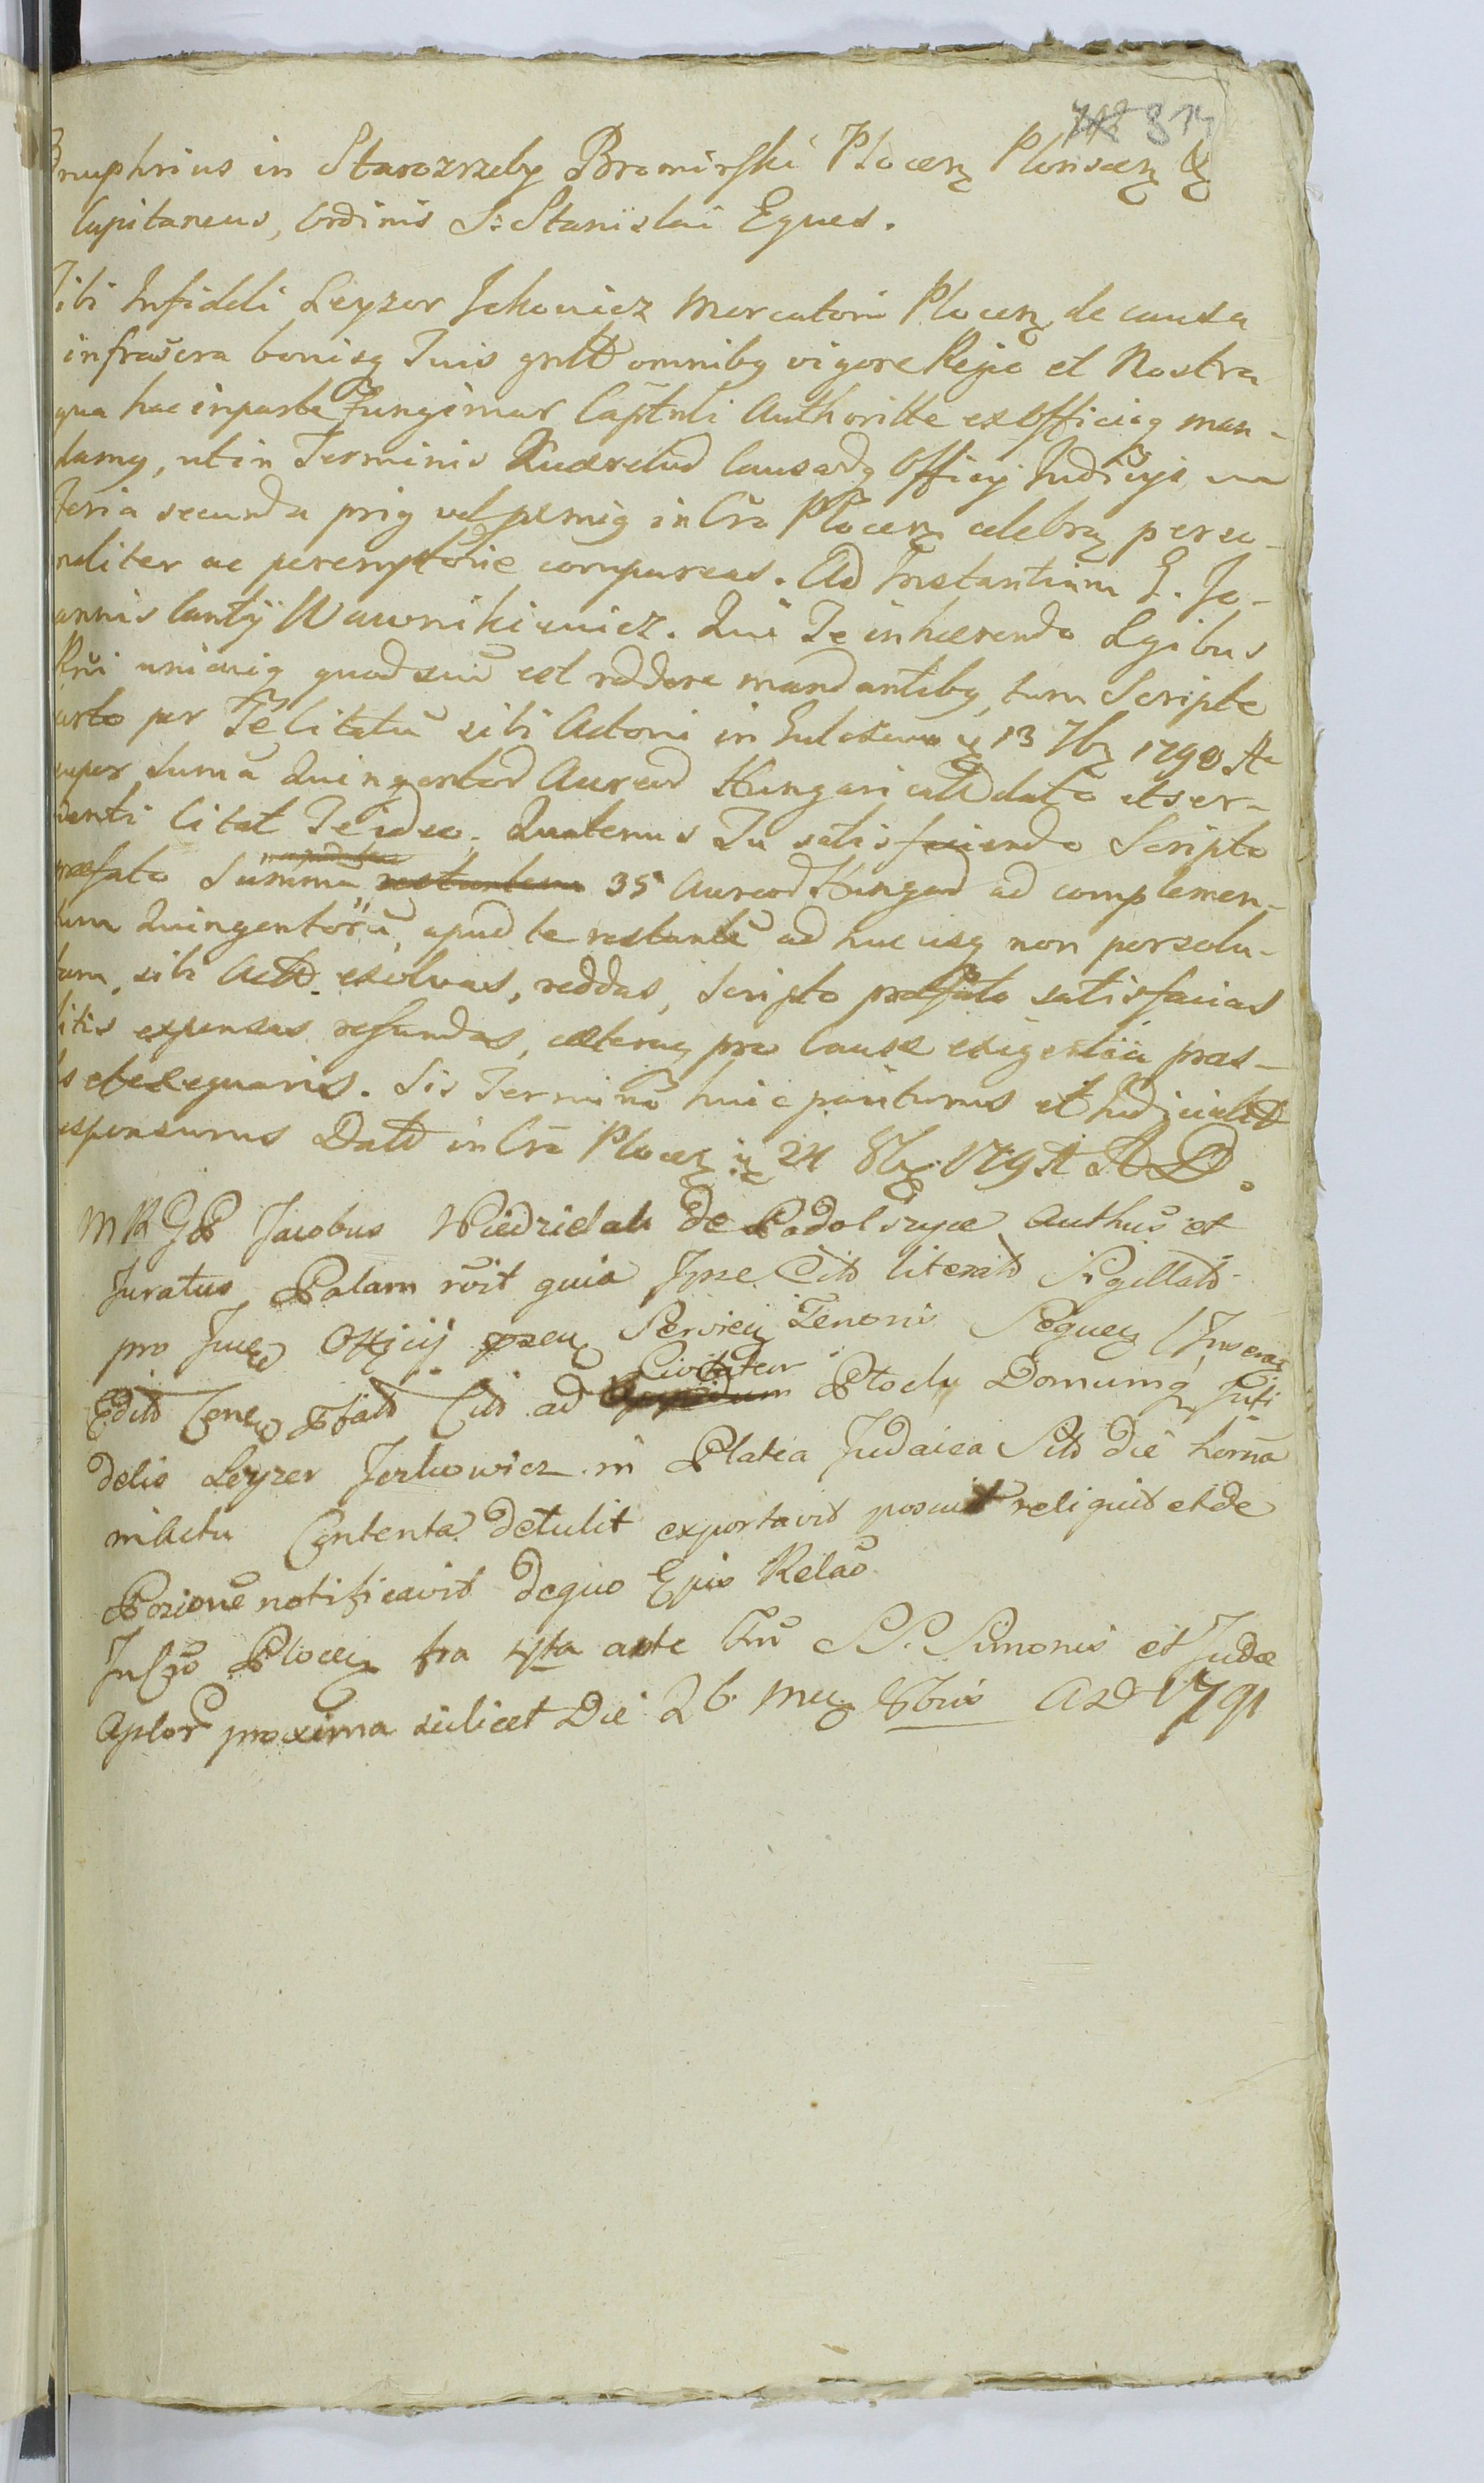 813
nuphrius in Starozrzeby Bromirski Plocen Plonscen &
Capitaneus, Ordinis S: Stanislai Eques.
ibi Infideli Leyzor Jckowicz Mercatori Plocen de causa
infrascra bonisq Tuis gnlt omnibq vigore Regia et Nostra
qua hac in parte fungimur Captnli Authoritte ex Officioq man-
damq, ut in Terminis Querelad Causadq Officij Judicijs
feria secunda priq vel pxmiq in Cro Plocen celebran perso-
naliter ac peremptorie compareas. Ad Instantiam G. Jo-
annis Cantij Wawnikiewicz. Qui Te inhærendo Legibus
Rni unicuiq quod suu est reddere mandantibq, tum Scripto
certo per Te Citatu sibi Actori in 13 7bq 1790 A
super Sumã Quingentod Aureod Hungaricalid dato et ser-
vienti Citat Te ideo. Quatenus Tu satisfaciendo Scripto
præfato Summã restantem 35 Aureod Hungad ad complemen-
tum Quingentoru, apud te restante ad huc usq non persolu-
tam, sibi Actd. exolvas, reddas, Scripto præfato satisfacias
litis expensas refundas, cæteraq pro Causæ exigentiã præs-
s et exequaris. Sis Terminũ huic pariturus et Judicialit
responsurus Datt in Crõ Plocen 24 8bq 1791 A D.
MRGP Jacobus Niedzielak de Podolszyce Authus et
Juratus Palam rõit quia Ipse Citõ literatõ Sigillatõ
pro Offcij psen Servien Tenoris Sequen
Editõ ad Civitatem Oppidum Płock Domumq Infi
delis Leyzer Jerkowicz in Platea Judaica Sitõ die herna
in Actu Contenta detulit exportavit posuit reliquit et de
Pozione notificavit dequo Ejus Relaõ
In Crõ Plocen fra 4ta ante SS. Simonis et Judæ
Aplor proxima scilicet Die 26 8bris A D 1791